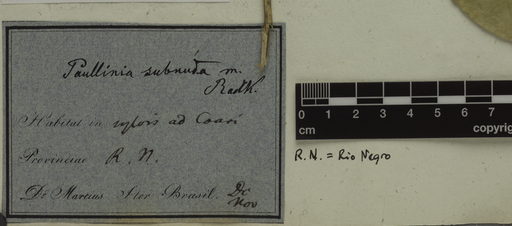 Paullinia subnuda m.
Radlk.
Habitat in sylvis ad Coari
Provinciae R. N.
Dr Martius Iter Brasil. Dc
Nov
0 1 2 3 4 5 6 7
cm copyrig
R.N. = Rio Negro